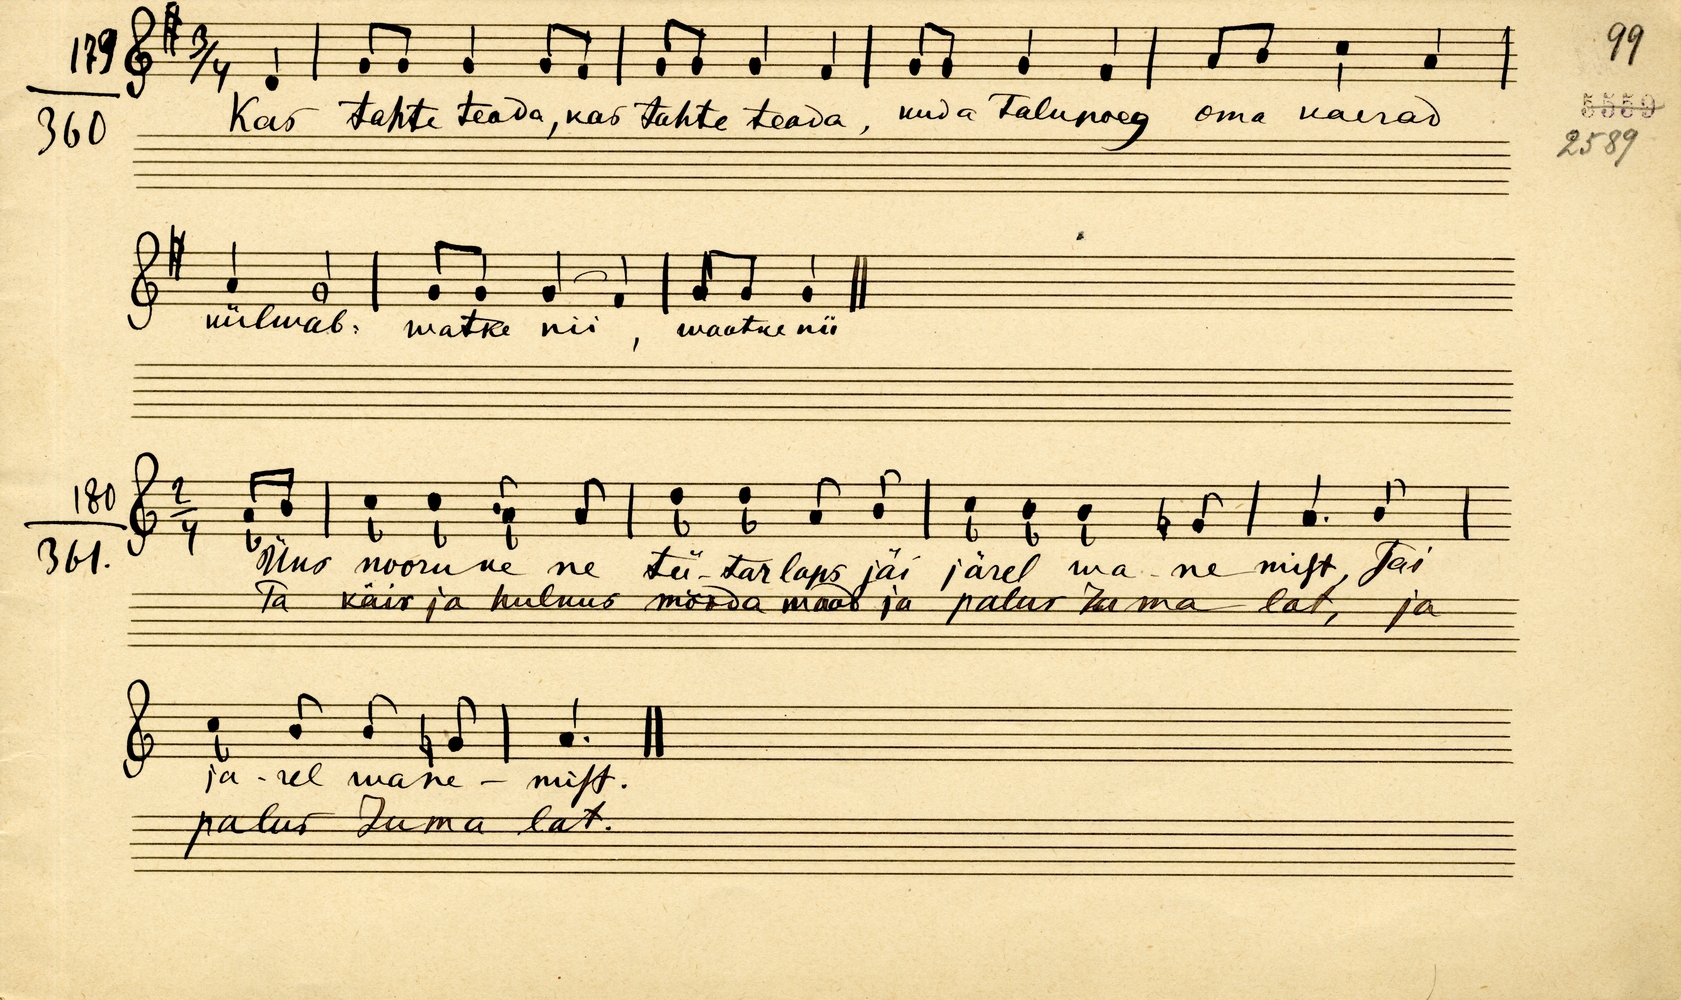 179 3/4 99
360 Kas tahte teada, kas tahte teada, kuda Talupoeg oma kaerad
5559
2589
külwab: watke nii, waatke nii
180 2/4
361. Üks noorukene tü-tarlaps jäi järel wa-nemist, Jäi
Ta käis ja hulkus mööda maad ja palus Juma lat, ja
jä-rel wane-mist.
palus Juma lat.